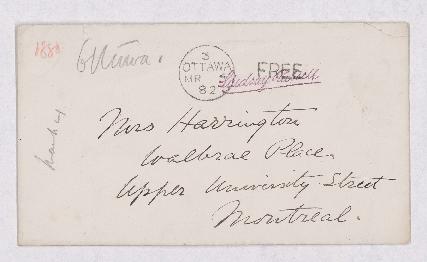 1882
Ottawa.
3
OTTAWA
MR 3
82
FREE
Lindsay Russell
Mrs Harrington
Walbrae Place.
Upper University Street
Montreal.